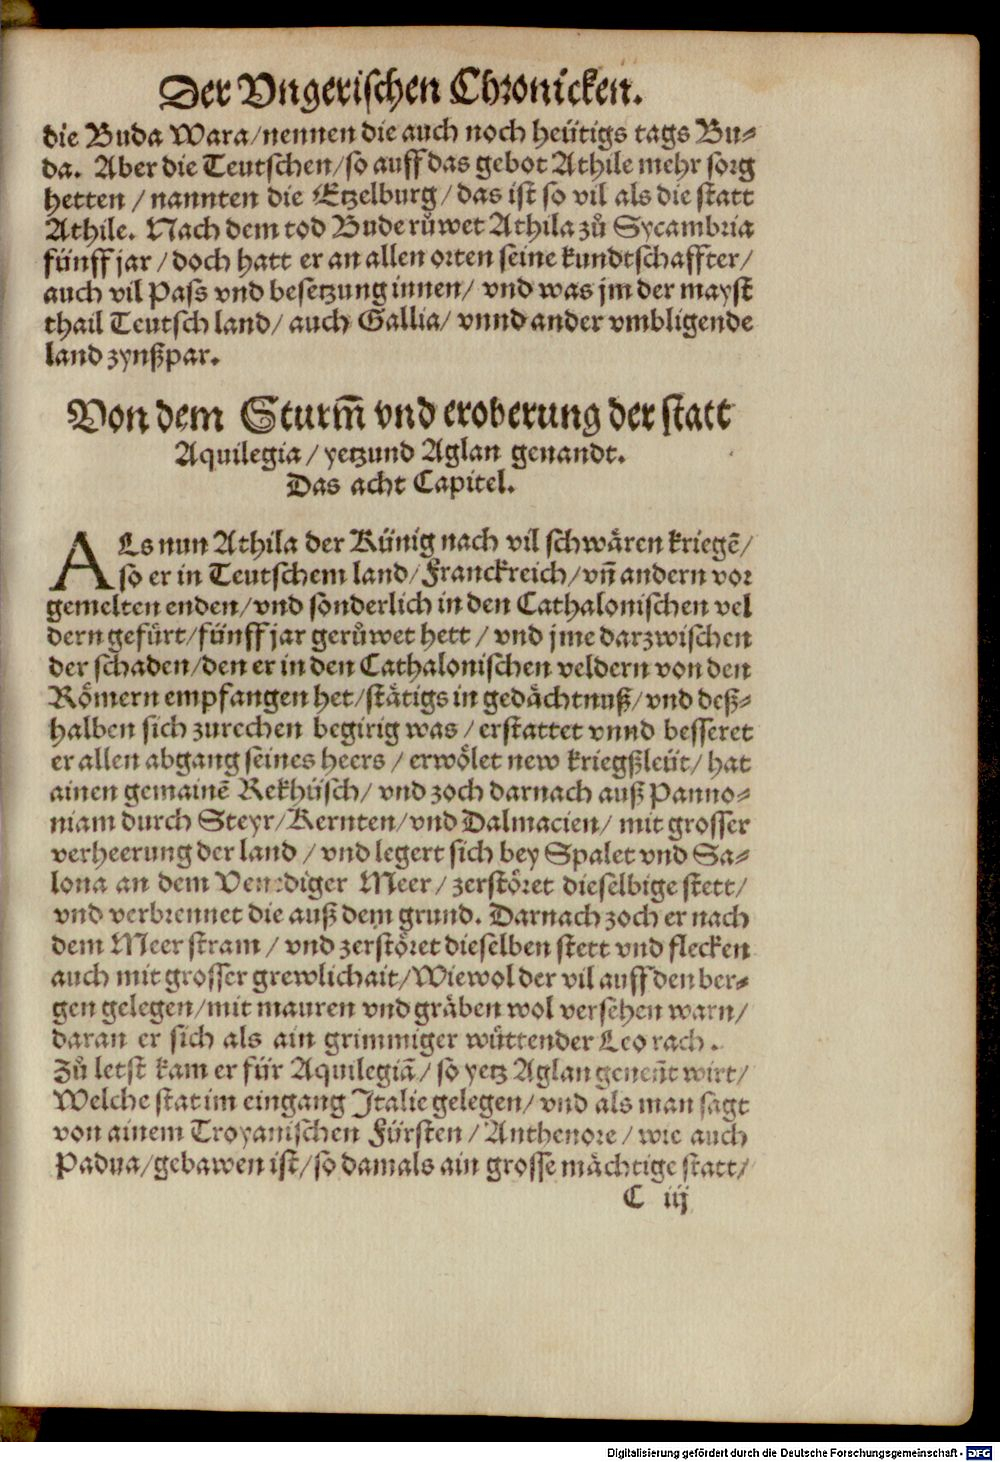 Der Vngerischen Chronicken.
die Buda Wara/nennen die auch noch heütigs tags Bu-
da. Aber die Teutschen/so auff das gebot Athile mehr sorg
hetten / nannten die Etzelburg / das ist so vil als die statt
Athile. Nach dem tod Bude růwet Athila zů Sycambria
fünff jar / doch hatt er an allen orten seine kundtschaffter/
auch vil Pass vnd besetzung innen/ vnd was jm der mayst
thail Teutsch land/ auch Gallia/ vnnd ander vmbligende
land zynßpar.
Von dem Sturm̄ vnd eroberung der statt
Aquilegia / yetzund Aglan genandt.
Das acht Capitel.
ALs nun Athila der Künig nach vil schwären kriegē/
so er in Teutschem land/Franckreich/vn̄ andern vor
gemelten enden/vnd sonderlich in den Cathalonischen vel
dern gefürt/fünff jar gerůwet hett / vnd jme darzwischen
der schaden/den er in den Cathalonischen veldern von den
Römern empfangen het/stätigs in gedächtnuß/vnd deß-
halben sich zurechen begirig was / erstattet vnnd besseret
er allen abgang seines heers / erwölet new kriegßleüt/ hat
ainen gemainē Rekhüsch/ vnd zoch darnach auß Panno-
niam durch Steyr/Kernten/vnd Dalmacien/ mit grosser
verheerung der land / vnd legert sich bey Spalet vnd Sa-
lona an dem Venediger Meer/ zerstöret dieselbige stett/
vnd verbrennet die auß dem grund. Darnach zoch er nach
dem Meer stram / vnd zerstöret dieselben stett vnd flecken
auch mit grosser grewlichait/Wiewol der vil auff den ber-
gen gelegen/mit mauren vnd gräben wol versehen warn/
daran er sich als ain grimmiger wüttender Leo rach.
Zů letst kam er für Aquilegiā/ so yetz Aglan genen̄t wirt/
Welche stat im eingang Italie gelegen/ vnd als man sagt
von ainem Troyanischen Fürsten / Anthenore / wie auch
Padua/gebawen ist/so damals ain grosse mächtige statt/
C iij
Digitalisierung gefördert durch die Deutsche Forschungsgemeinschaft - DFG